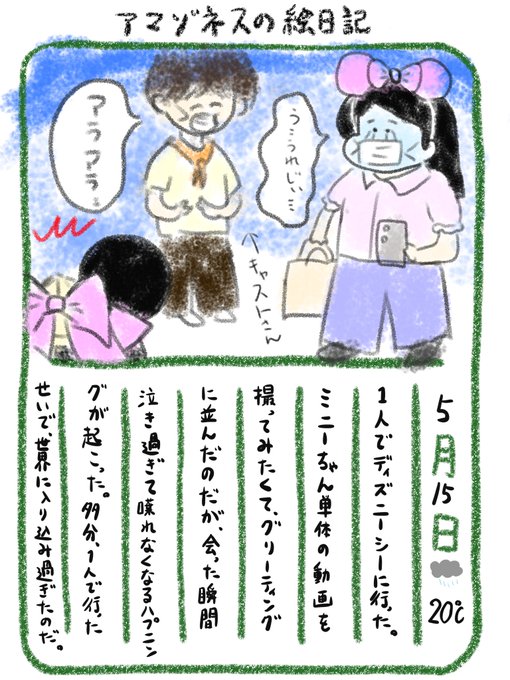 アマゾネスの絵日記
うううれじい…
アラアラ。
キャストさん
5月15日
20℃
1人でディズニーシーに行った。
ミニーちゃん単体の動画を
撮ってみたくて、グリーティング
に並んだのだが、会った瞬間
泣き過ぎて喋れなくなるハプニン
グが起こった。多分、1人で行った
せいで、世界に入り込み過ぎたのだ。